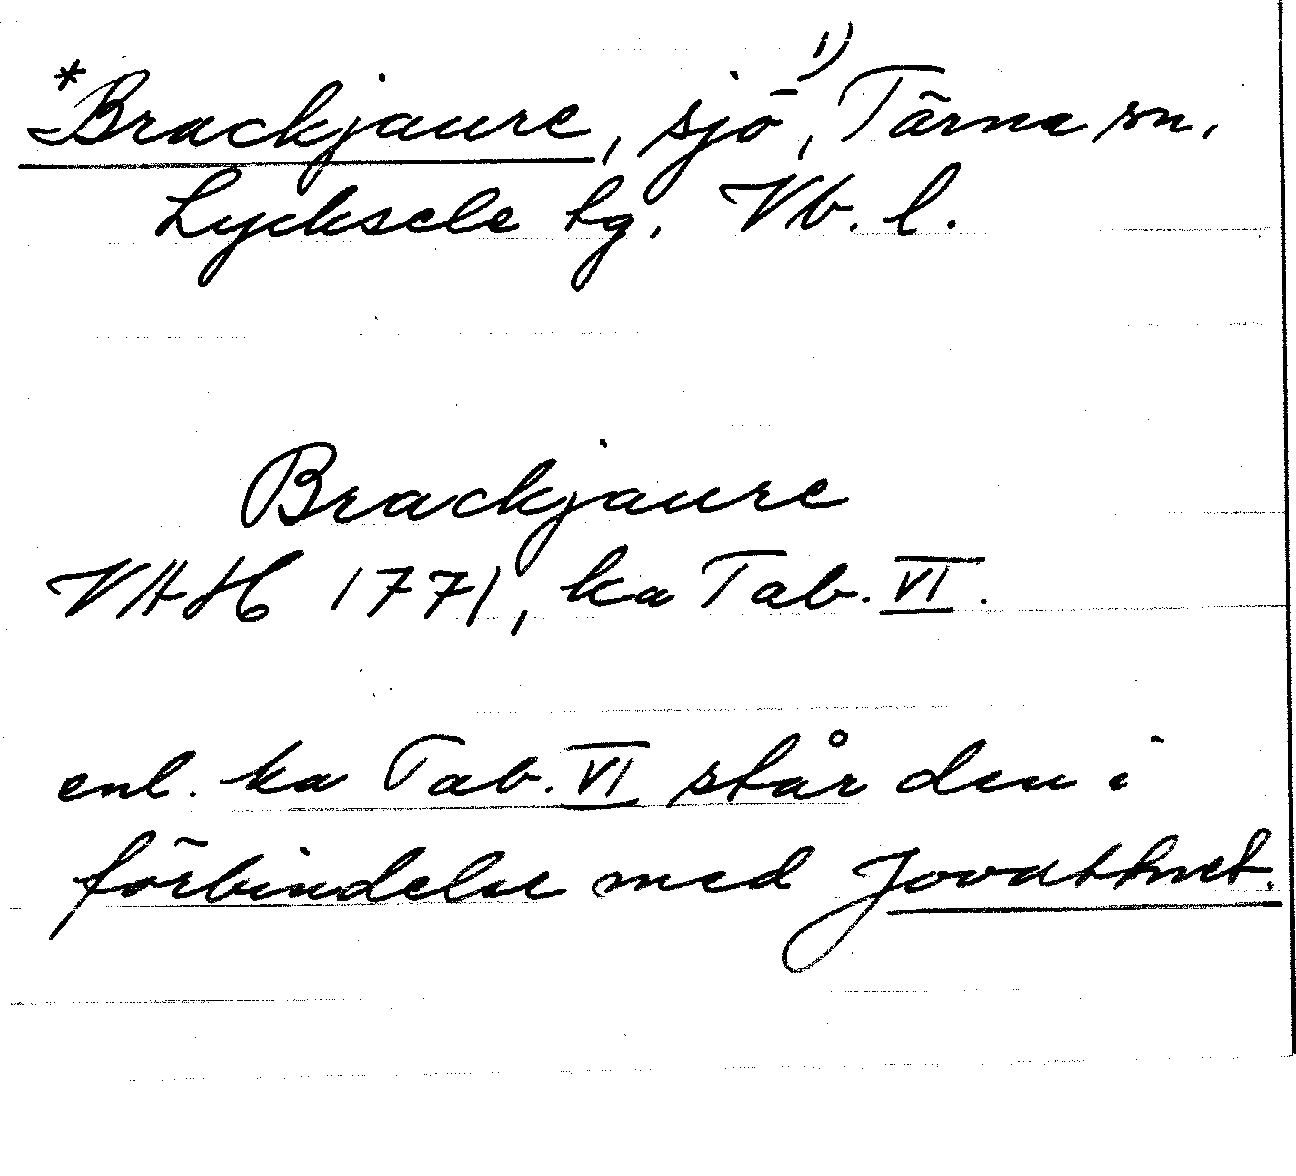 *Brackjaure, sjö¹⁾, Tärna sn,
Lycksele lg. Vb. l.
Brackjaure
VAH 1771, ka Tab. VI.
enl. ka Tab. VI står den i
förbindelse med Jovattnet.